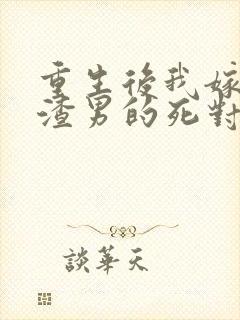 重生後我嫁
渣男的死對
談華天